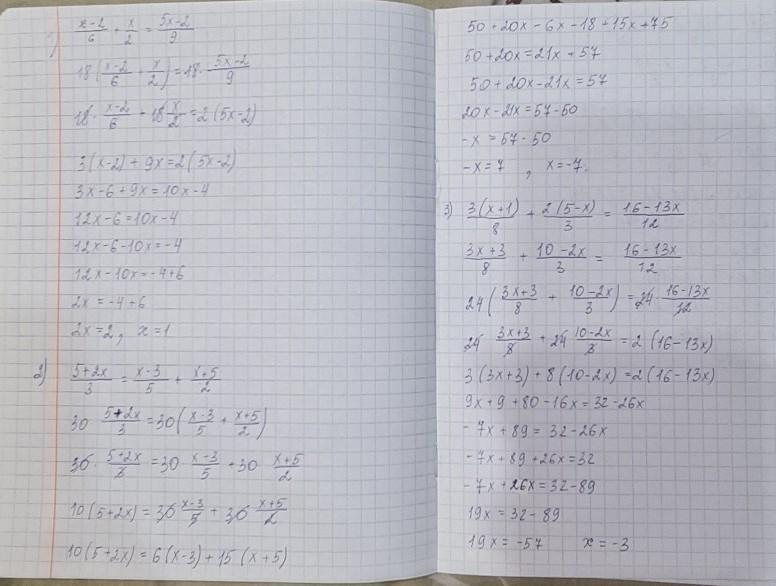 1) (x-2)/6 + x/2 = (5x-2)/9
18((x-2)/6 + x/2) = 18 · (5x-2)/9
18 · (x-2)/6 + 18 x/2 = 2(5x-2)
3(x-2) + 9x = 2(5x-2)
3x-6+9x = 10x-4
12x-6 = 10x-4
12x-6-10x = -4
12x-10x = -4+6
2x = -4+6
2x = 2, x = 1
2) (5+2x)/3 = (x-3)/5 + (x+5)/2
30 · (5+2x)/3 = 30((x-3)/5 + (x+5)/2)
30 · (5+2x)/3 = 30 · (x-3)/5 + 30 · (x+5)/2
10(5+2x) = 30 (x-3)/5 + 30 (x+5)/2
10(5+2x) = 6(x-3) + 15(x+5)
50+20x-6x-18+15x+75
50+20x = 21x+57
50+20x-21x = 57
20x-21x = 57-50
-x = 57-50
-x = 7, x = -7.
3) 3(x+1)/8 + 2(5-x)/3 = (16-13x)/12
(3x+3)/8 + (10-2x)/3 = (16-13x)/12
24((3x+3)/8 + (10-2x)/3) = 24 · (16-13x)/12
24 (3x+3)/8 + 24 (10-2x)/3 = 2(16-13x)
3(3x+3) + 8(10-2x) = 2(16-13x)
9x+9+80-16x = 32-26x
-7x+89 = 32-26x
-7x+89+26x = 32
-7x+26x = 32-89
19x = 32-89
19x = -57 x = -3